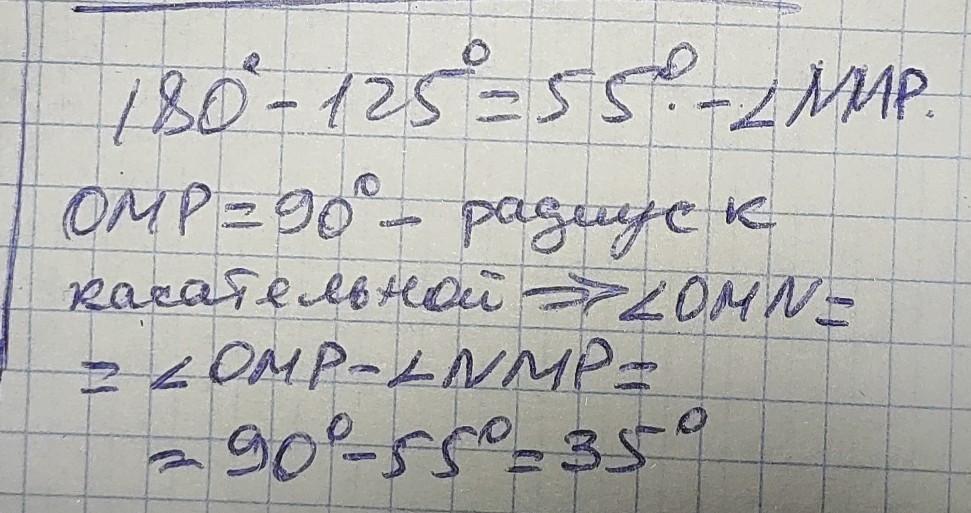 180° - 125° = 55°. - ∠NMP.
OMP = 90° - радиус к
касательной ⇒ ∠OMN =
= ∠OMP - ∠NMP =
= 90° - 55° = 35°